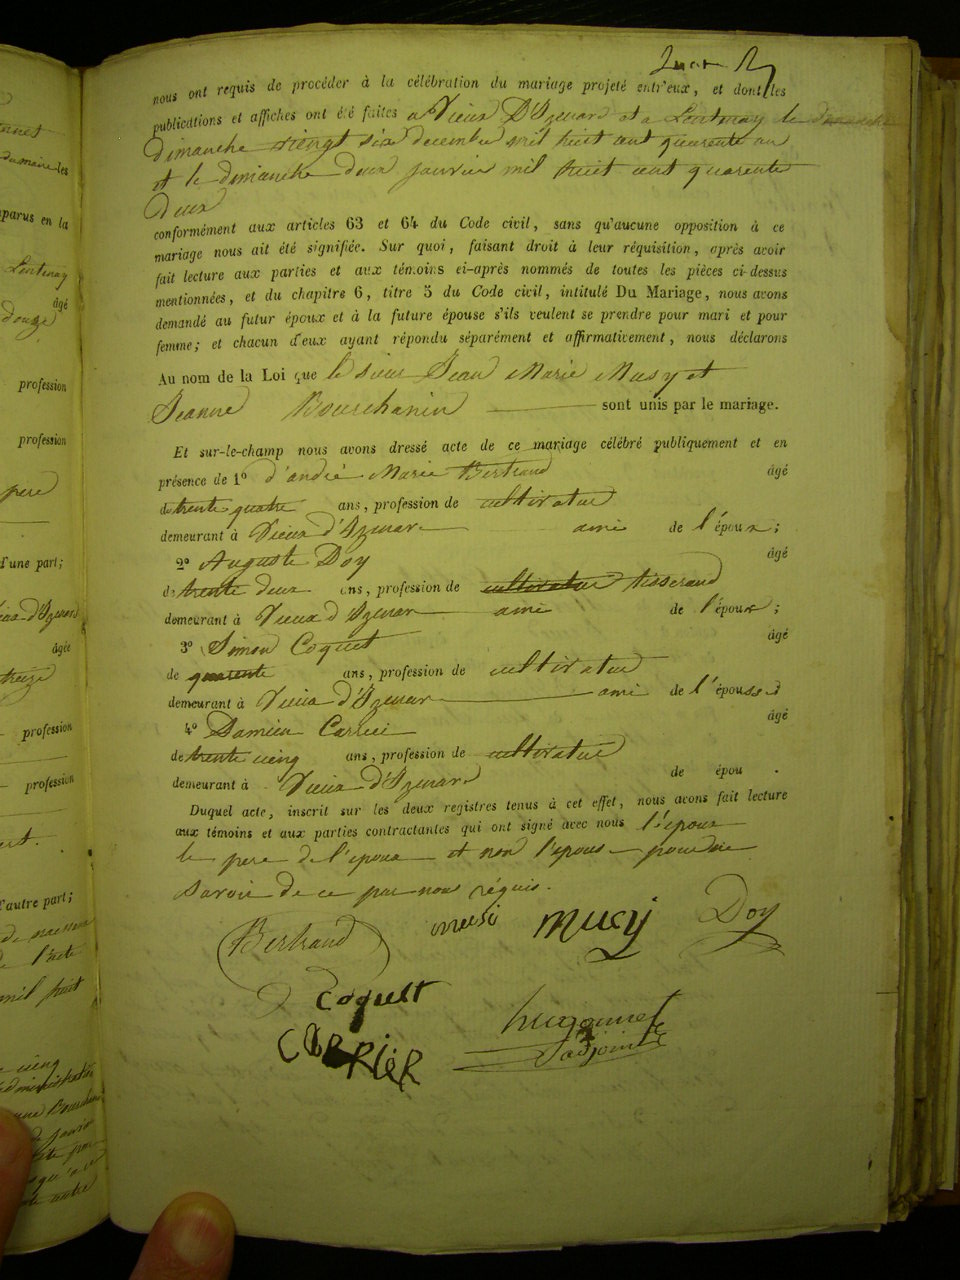 nous ont requis de procéder à la célébration du mariage projeté entr'eux, et dont les
publications et affiches ont été faites a Vieux D'Izenard et a Lentenay le
dimanche vingt six decembre mil huit cent quarente un
et le dimanche deux janvier mil huit cent quarente
deux
conformément aux articles 63 et 64 du Code civil, sans qu'aucune opposition à ce
mariage nous ait été signifiée. Sur quoi, faisant droit à leur réquisition, après avoir
fait lecture aux parties et aux témoins ci-après nommés de toutes les pièces ci-dessus
mentionnées, et du chapitre 6, titre 5 du Code civil, intitulé Du Mariage, nous avons
demandé au futur époux et à la future épouse s'ils veulent se prendre pour mari et pour
femme; et chacun d'eux ayant répondu séparément et affirmativement, nous déclarons
Au nom de la Loi que le sieur Jean Marie Musy et
Jeanne Bourchanin sont unis par le mariage.
Et sur-le-champ nous avons dressé acte de ce mariage célébré publiquement et en
présence de 1º d'andré Marie Bertrand âgé
de trente quatre ans, profession de cultivateur
demeurant à Vieux d'Izenard ami de l'époux;
2º Auguste Doy âgé
de trente deux ans, profession de cultivateur tisserand
demeurant à Vieux d'Izenard ami de l'époux;
3º Simon Coquet âgé
de quarente ans, profession de cultivateur
demeurant à Vieux d'Izenard ami de l'épouse
4º Damien Carrier âgé
de trente cinq ans, profession de cultivateur
demeurant à Vieux d'Izenard de épou .
Duquel acte, inscrit sur les deux registres tenus à cet effet, nous avons fait lecture
aux témoins et aux parties contractantes qui ont signé avec nous l'époux
le pere de l'epoux et non l'epouse pour ne
savoir de ce par nous réquis.
Bertrand musi mucy Doy
Coquet
CARRIER
hugonnet
l'adjoint